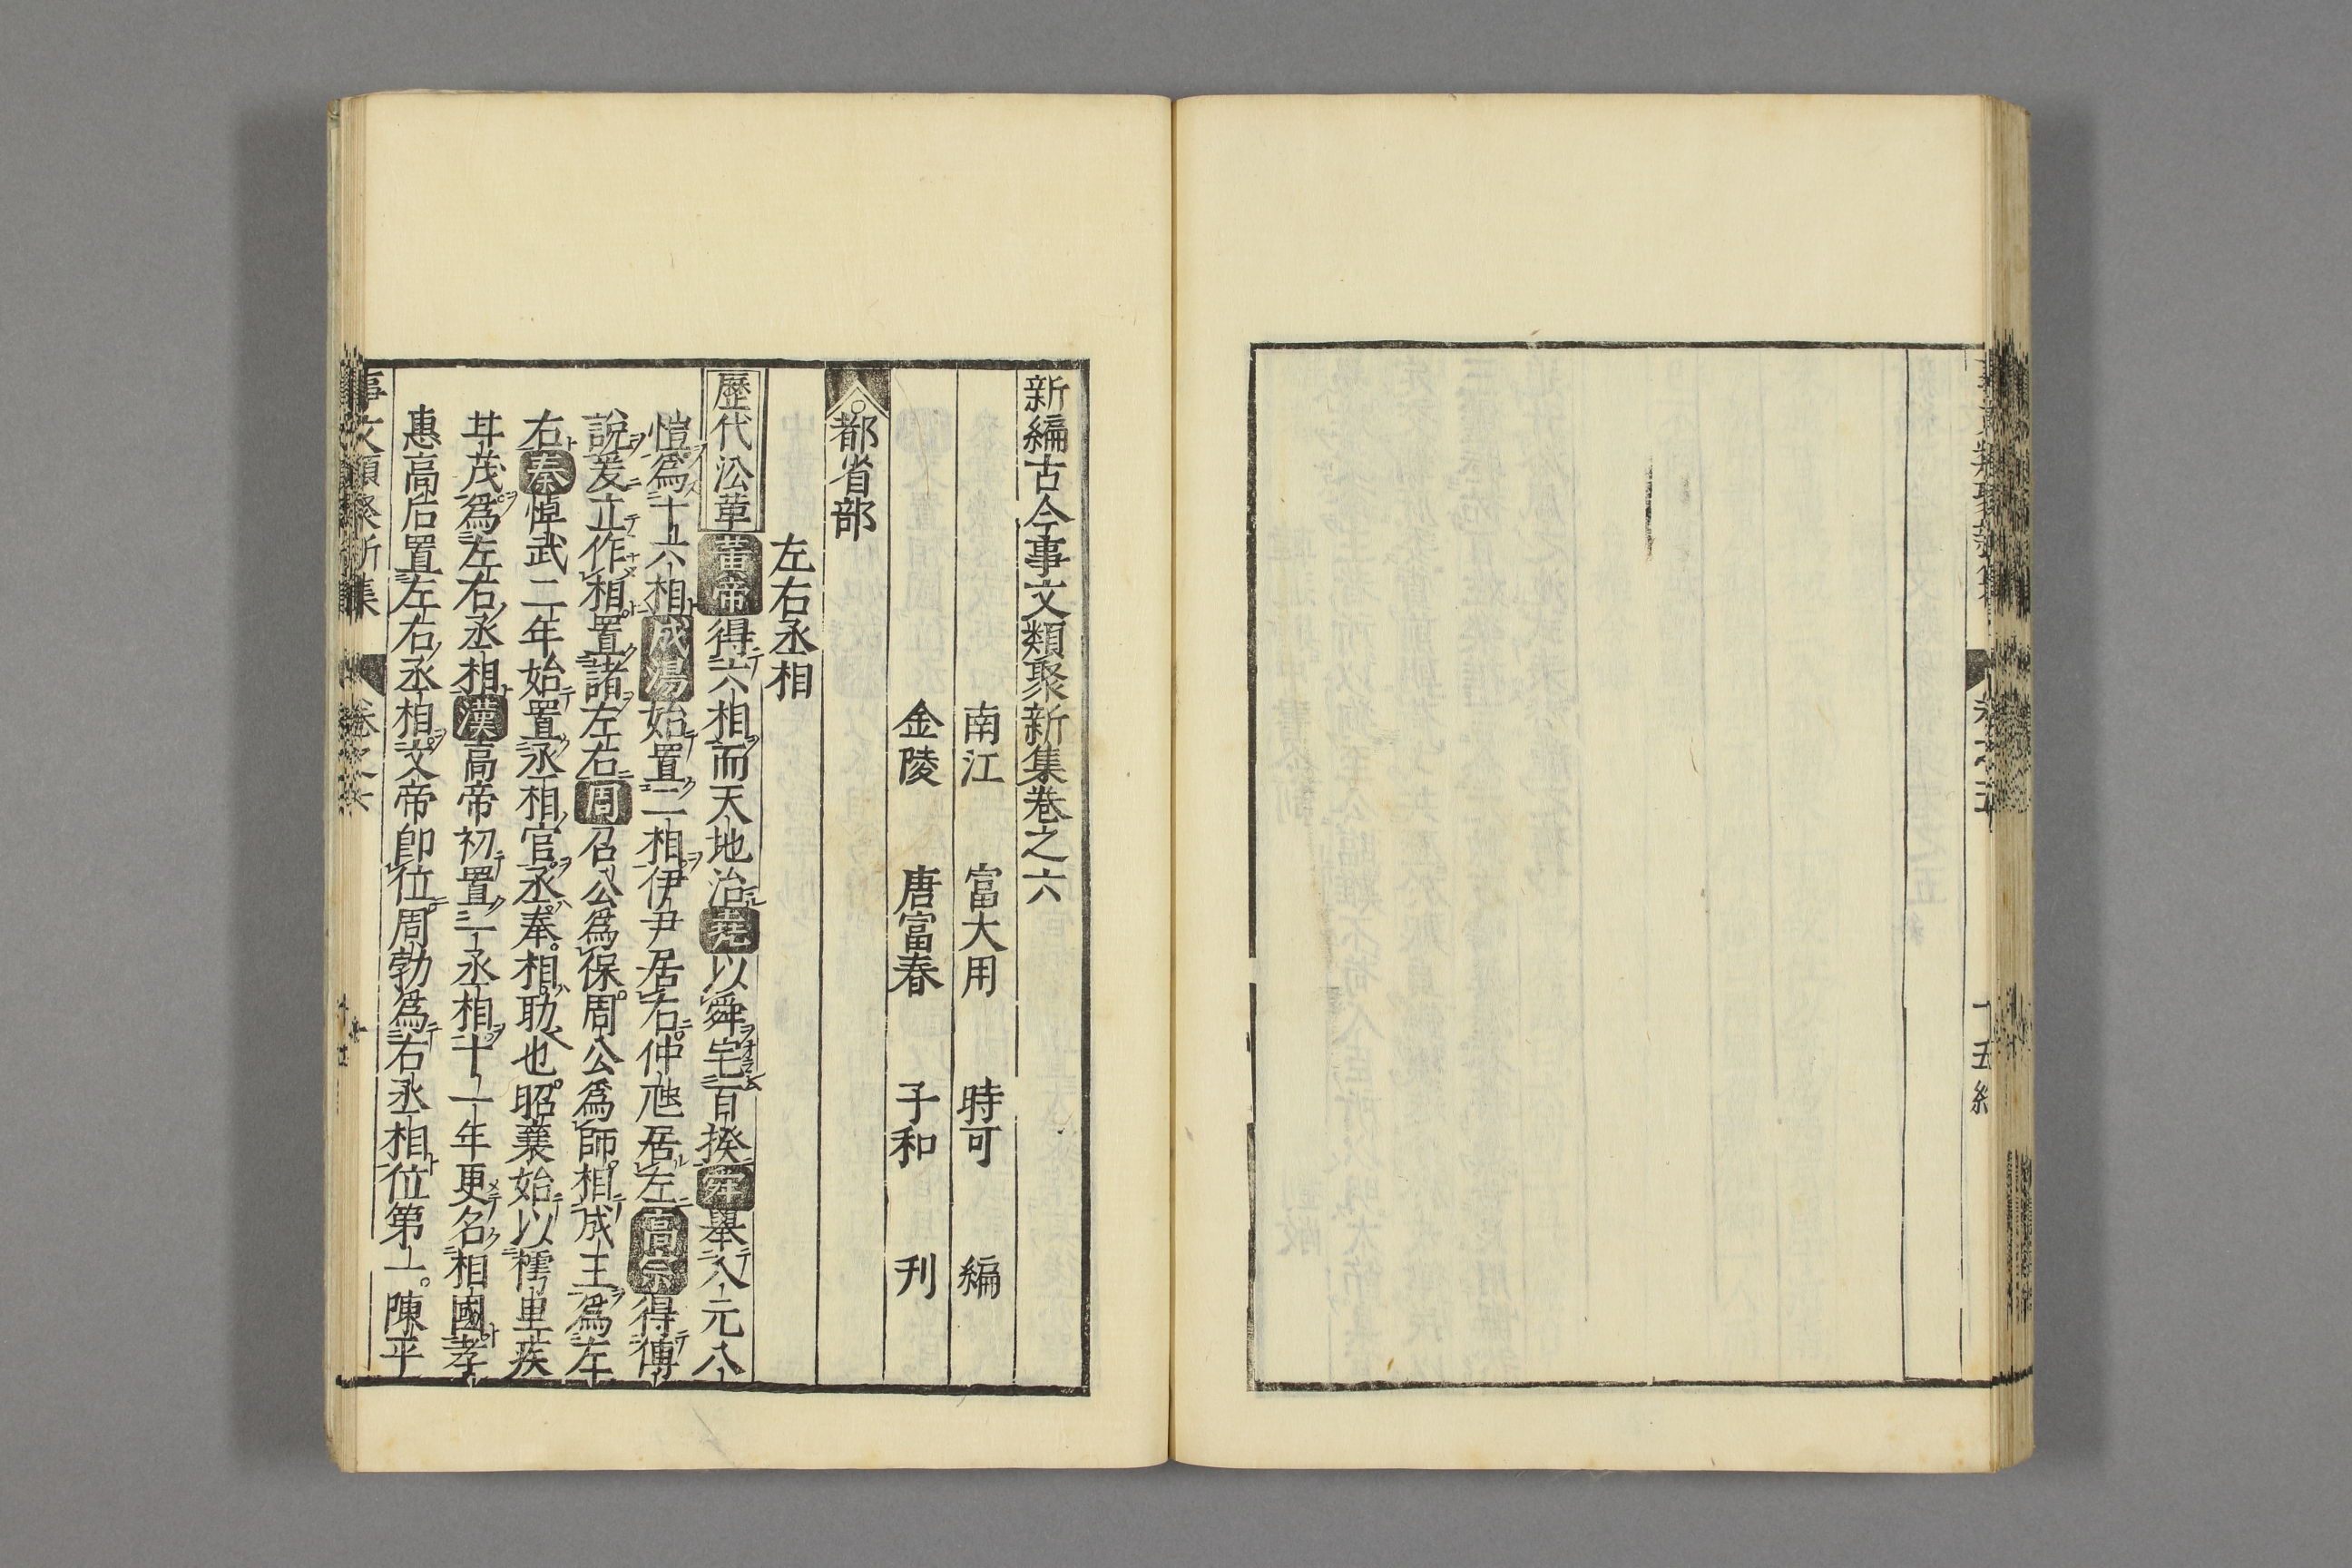 新編古今事文類聚新集巻之六
南江　富大用　時可　編
金陵　唐富春　子和　刊
都省部
左右丞相
歴代㳂革 黃帝得六相而天地治堯以舜宅百揆舜舉八元八
愷爲十六相成湯始置二相伊尹居右仲虺居左高宗得傅
說爰立作相置諸左右周召公爲保周公爲師相成王爲左
右秦悼武二年始置丞相官丞奉相助也昭襄始以樗里疾
甘茂爲左右丞相漢高帝初置一丞相十一年更名相國孝
惠高后置左右丞相文帝卽位周勃爲右丞相位第一陳平
事文類聚新集　卷之六